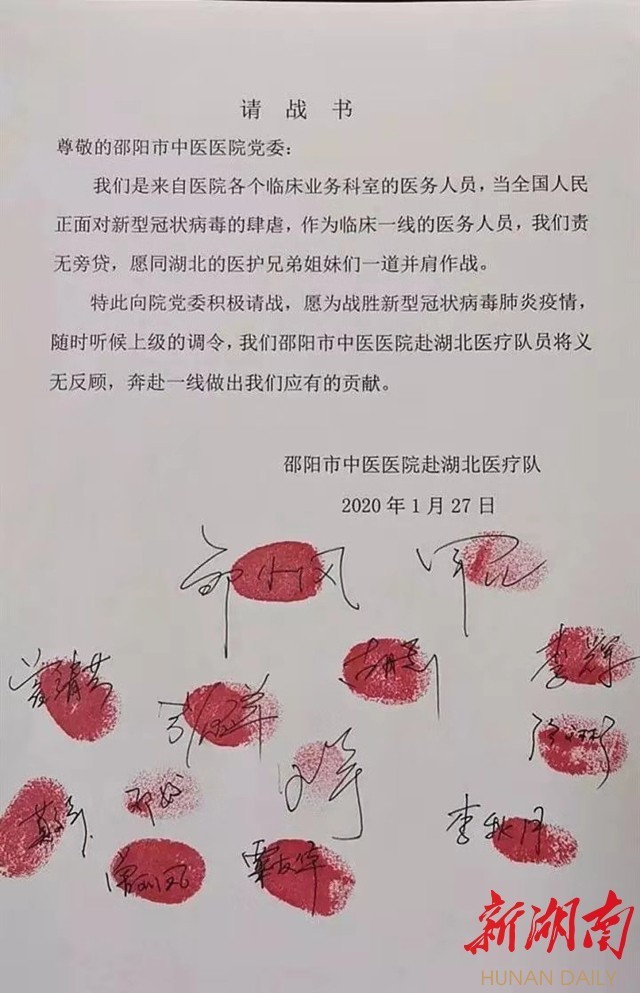 请战书
尊敬的邵阳市中医医院党委：
我们是来自医院各个临床业务科室的医务人员，当全国人民
正面对新型冠状病毒的肆虐，作为临床一线的医务人员，我们责
无旁贷，愿同湖北的医护兄弟姐妹们一道并肩作战。
特此向院党委积极请战，愿为战胜新型冠状病毒肺炎疫情，
随时听候上级的调令，我们邵阳市中医医院赴湖北医疗队员将义
无反顾，奔赴一线做出我们应有的贡献。
邵阳市中医医院赴湖北医疗队
2020年1月27日
李辉
李秋月
新湖南
HUNAN DAILY